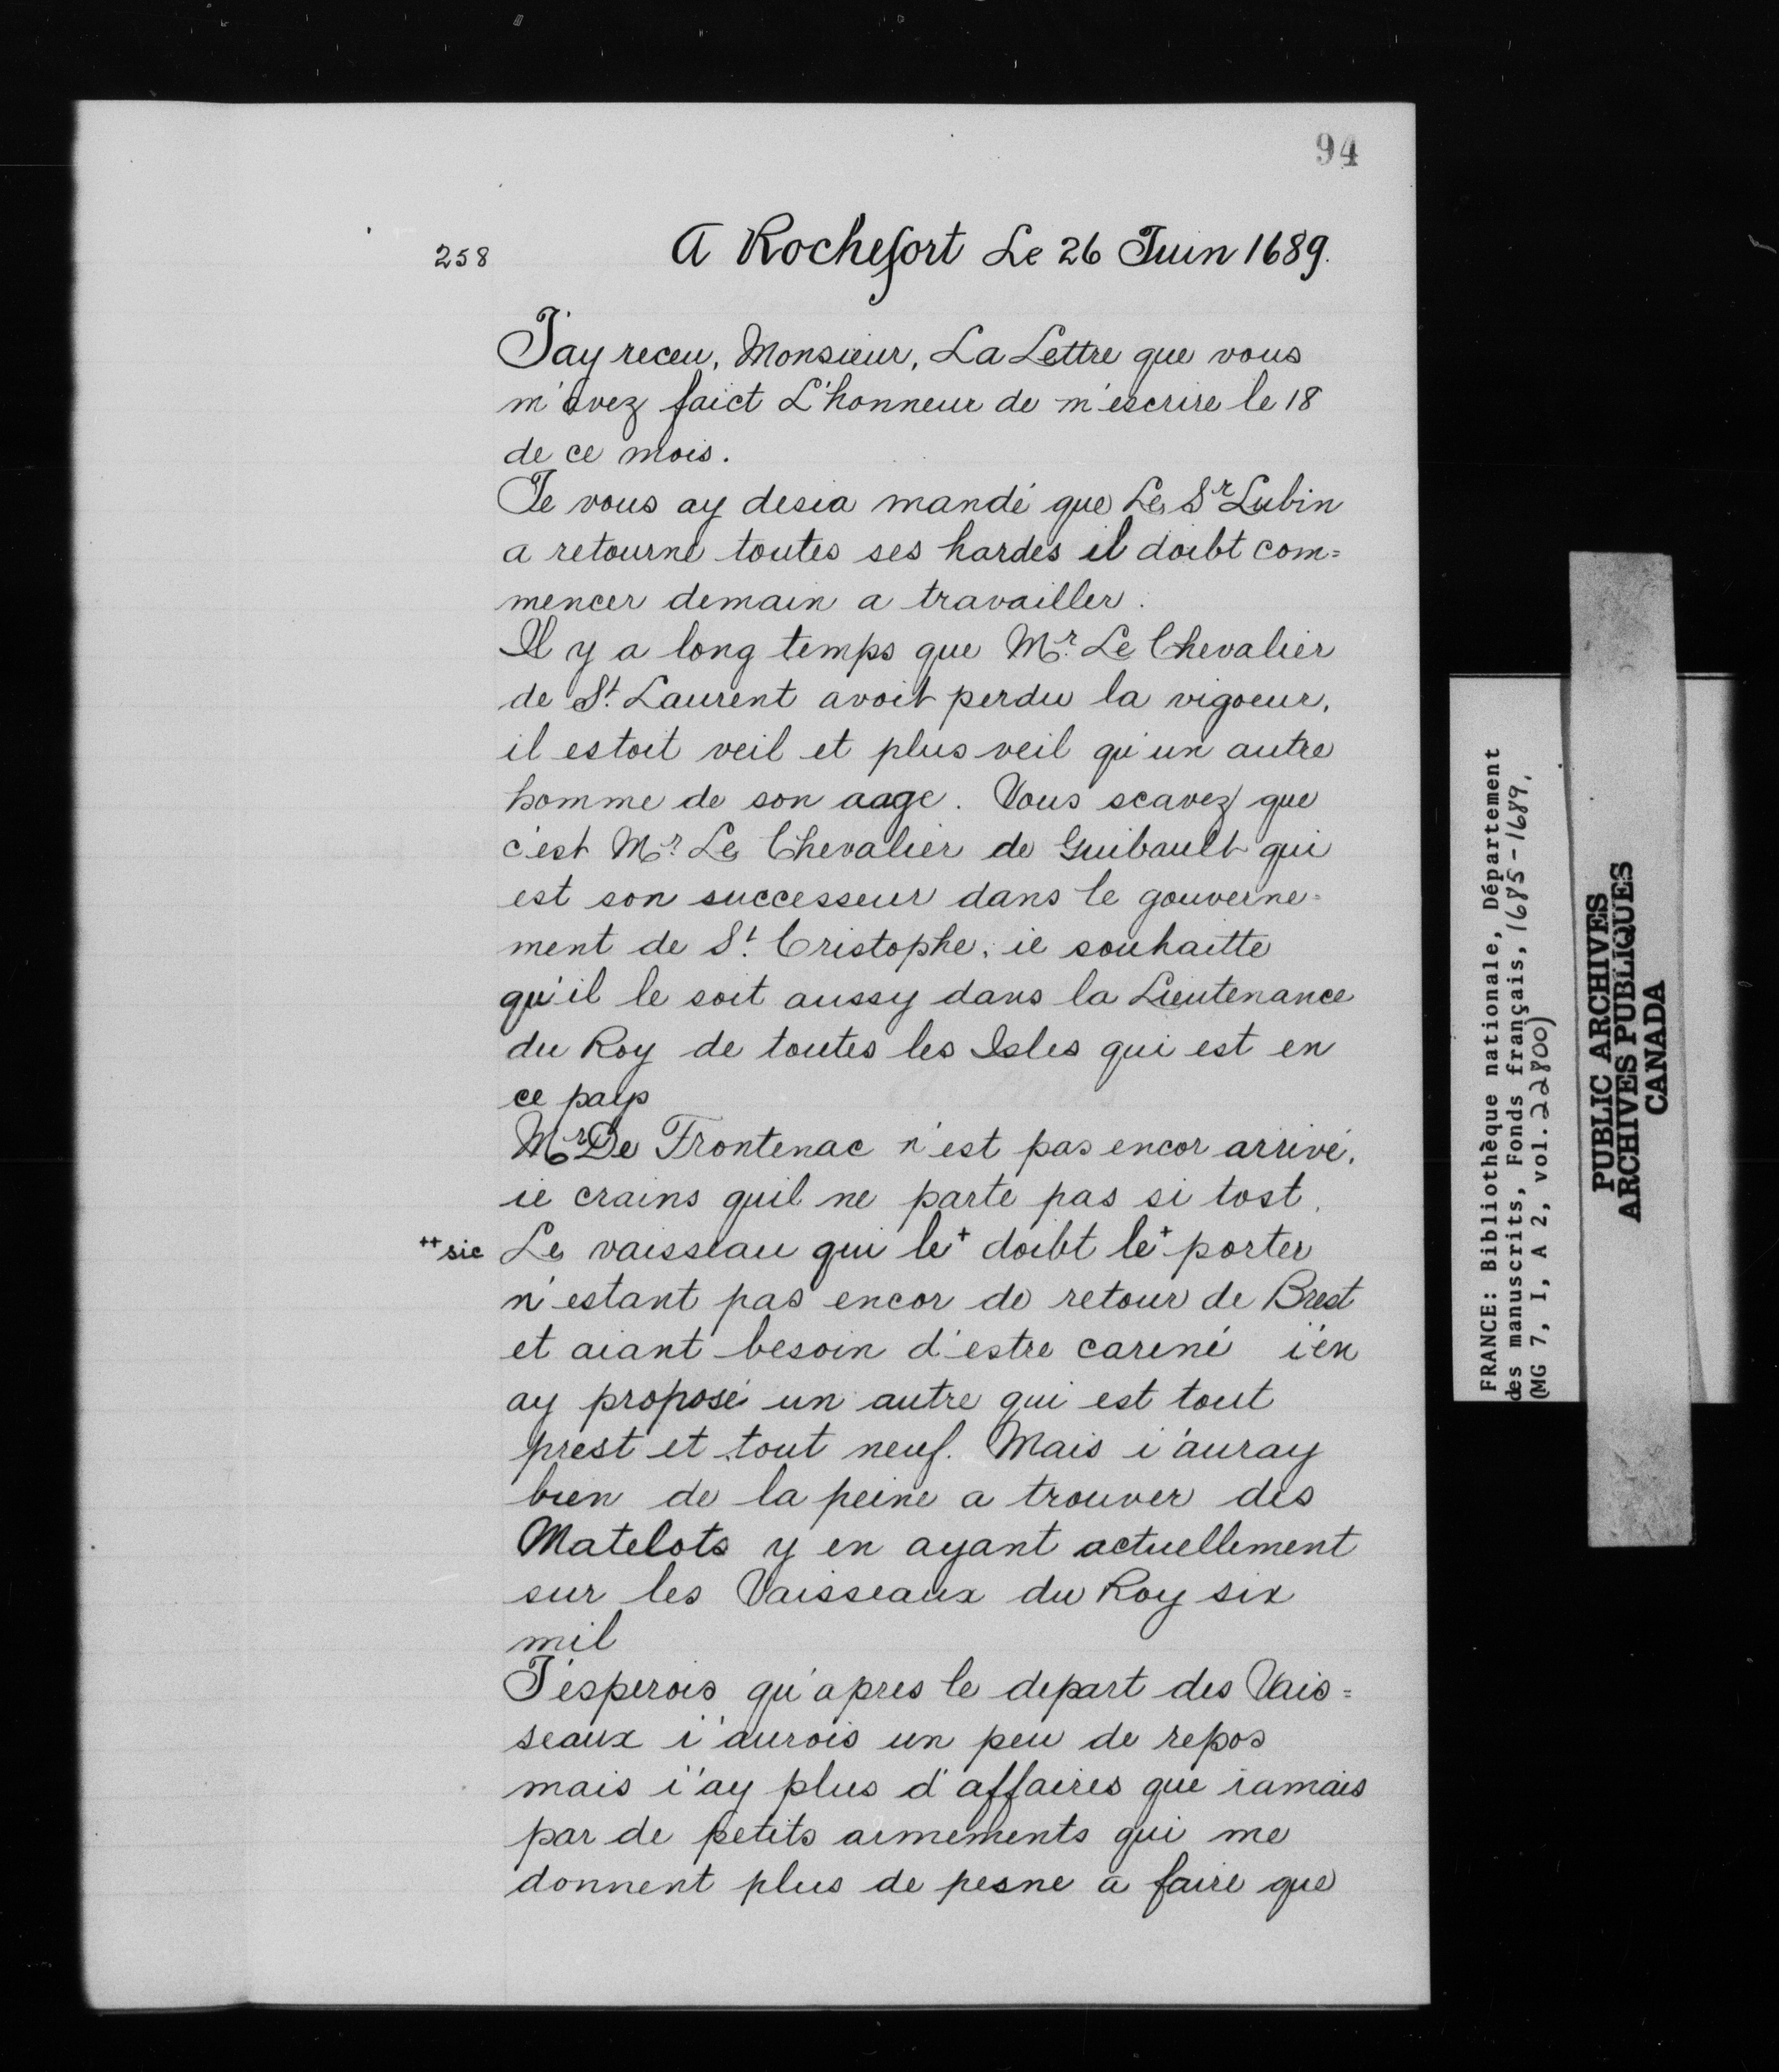 94
258
A Rochefort Le 26 Juin 1689.
J'ay receu, Monsieur, La Lettre que vous
m'avez faict L'honneur de m'escrire le 18
de ce mois.
Je vous ay desia mandé que Le Sr Lubin
a retourné toutes ses hardes il doibt com=
mencer demain a travailler.
Il y a long temps que Mr. Le Chevalier
de St. Laurent avoit perdu la vigoeur,
il estoit veil et plus veil qu'un autre
homme de son aage. Vous scavez que
c'est Mr. Le Chevalier de Guibault qui
est son successeur dans le gouverne-
ment de St. Cristophe, ie souhaitte
qu'il le soit aussy dans la Lieutenance
du Roy de toutes les Isles qui est en
ce pays
Mr De Frontenac n'est pas encor arrivé,
ie crains quil ne parte pas si tost.
++ sic Le vaisseau qui le+ doibt le+ porter
n'estant pas encor de retour de Brest
et aiant besoin d'estre carené i'en
ay proposé un autre qui est tout
prest et tout neuf. Mais i'auray
bien de la peine a trouver des
Matelots y en ayant actuellement
sur les Vaisseaux du Roy six
mil
J'esperois qu'apres le depart des Vais=
seaux i'aurois un peu de repos
mais i'ay plus d'affaires que iamais
par de petits armements qui me
donnent plus de pesne a faire que
FRANCE: Bibliothèque nationale, Département
des manuscrits, Fonds français, 1685-1689.
(MG 7, I, A 2, vol. 22800)
PUBLIC ARCHIVES
ARCHIVES PUBLIQUES
CANADA